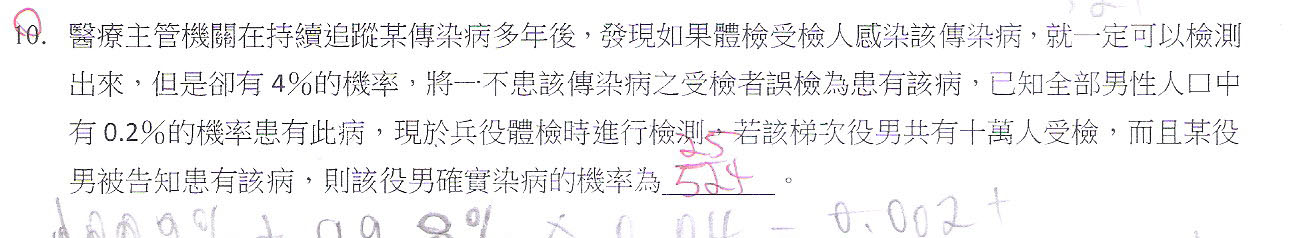 10. 醫療主管機關在持續追蹤某傳染病多年後，發現如果體檢受檢人感染該傳染病，就一定可以檢測
出來，但是卻有 4%的機率，將一不患該傳染病之受檢者誤檢為患有該病，已知全部男性人口中
有 0.2%的機率患有此病，現於兵役體檢時進行檢測，若該梯次役男共有十萬人受檢，而且某役
男被告知患有該病，則該役男確實染病的機率為 25/524 。
+ 99.8% × 0.04 = 0.002 +